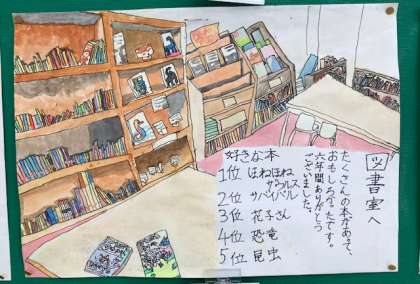 図書室へ
たくさんの本があって、
おもしろかったです。
六年間ありがとう
ございました。
好きな本
1位 ほねほね
ザウルス
2位 サバイバル
3位 花子さん
4位 恐竜
5位 昆虫